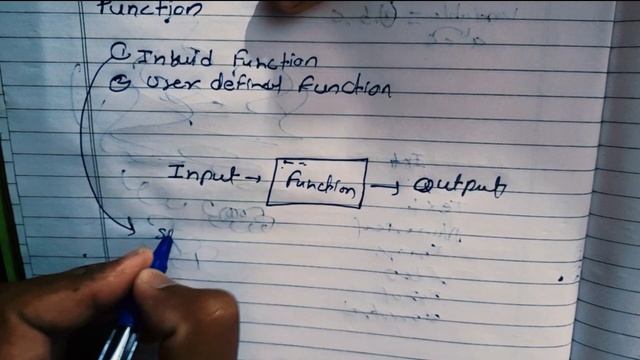 Function
① Inbuid function
② User defined function
Input → function → Output